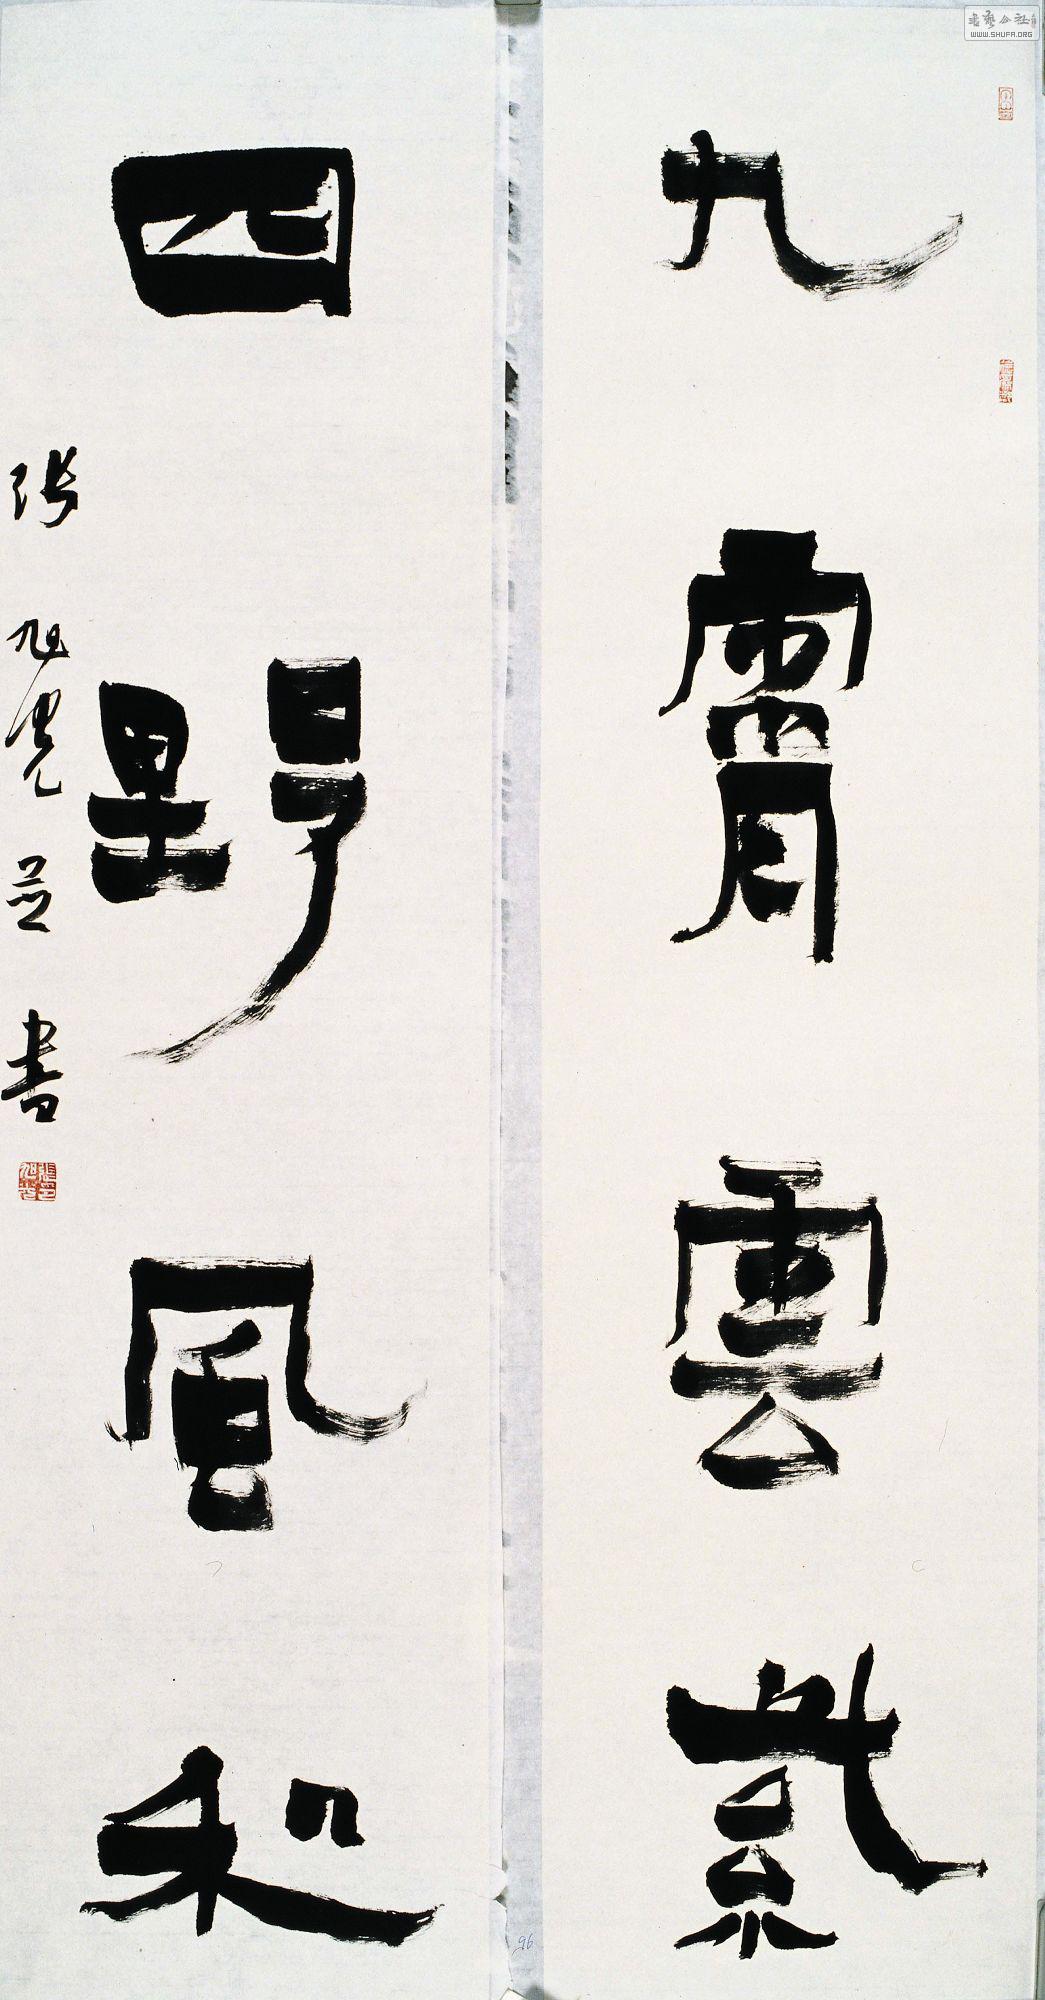 九霄雲紫
四野風和
張旭光並書
書藝公社
WWW.SHUFA.ORG
96